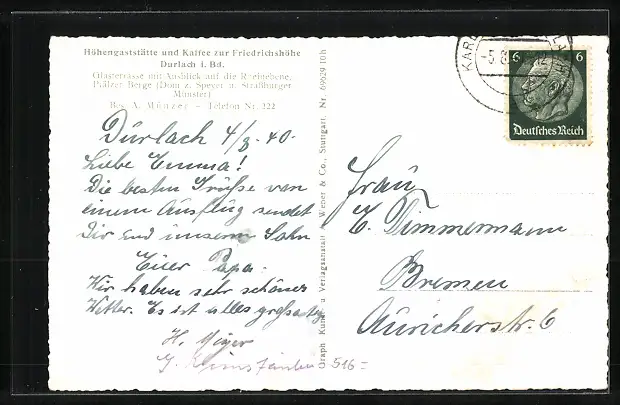 Höhengaststätte und Kaffee zur Friedrichshöhe
Durlach i. Bd.
Glasterrasse mit Ausblick auf die Rheinebene,
Pfälzer Berge (Dom z. Speyer u. Straßburger
Münster)
Bes. A. Münzer - Telefon Nr. 322
Durlach 4/8. 40.
Liebe Emma!
Die besten Grüße von
einem Ausflug sendet
Dir und unserm Sohn
Euer Papa.
Wir haben sehr schönes
Wetter. Es ist alles großartig
H. Meyer
516=
Graph. Kunst- u. Verlagsanstalt Weber & Co., Stuttgart. Nr. 69629 10 h
KARL
-5.8.
6 6
Deutsches Reich
Frau
E. Timmermann
Bremen
Auricherstr. 6